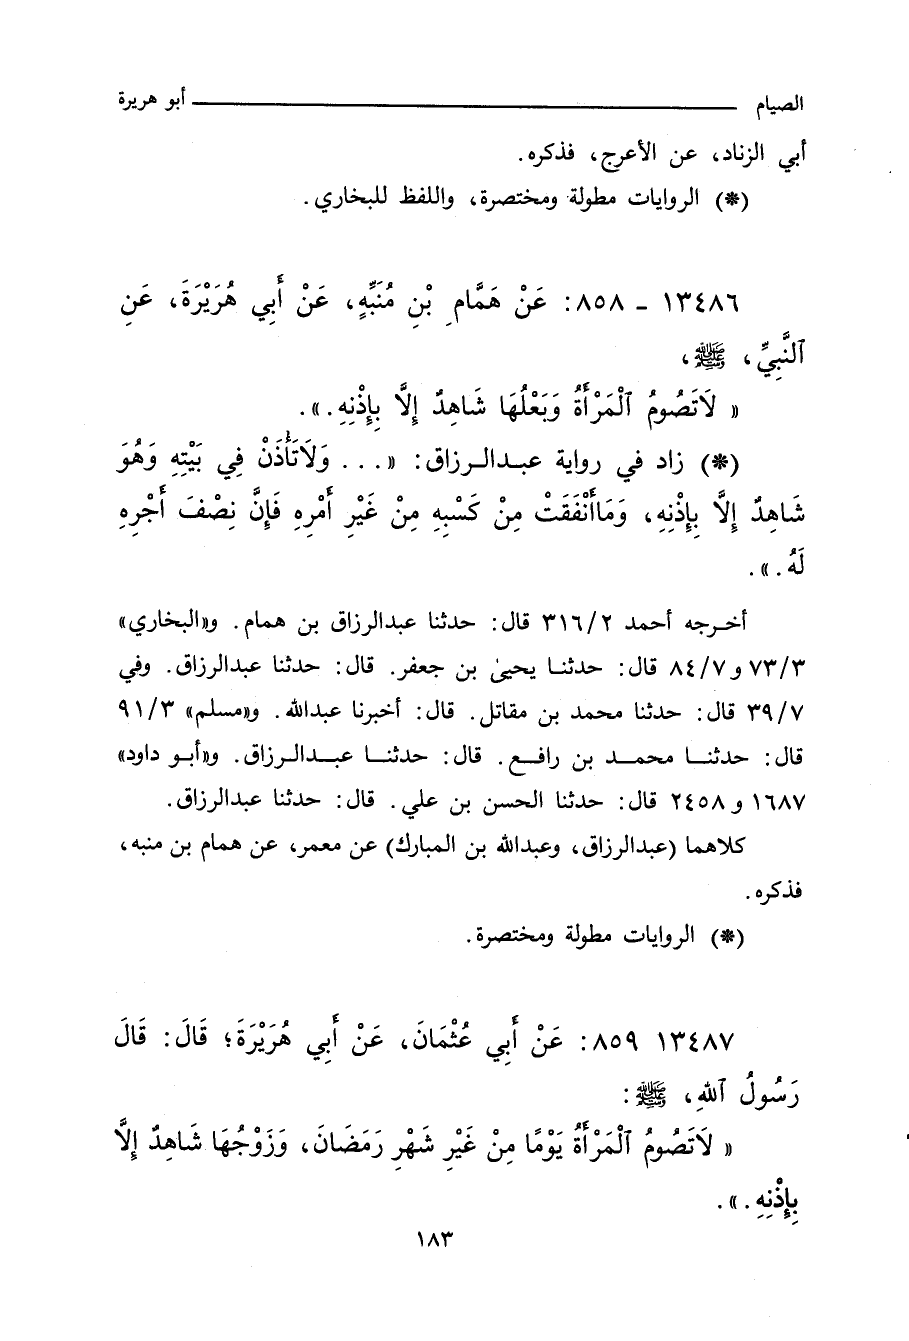 الصيام ـــــــــــــــــ أبو هريرة
أبي الزناد، عن الأعرج، فذكره.
(*) الروايات مطولة ومختصرة، واللفظ للبخاري.
١٣٤٨٦ ـ ٨٥٨: عَنْ هَمَّامِ بْنِ مُنَبِّهٍ، عَنْ أَبِي هُرَيْرَةَ، عَنِ
ٱلنَّبِيِّ، ﷺ،
« لَاتَصُومُ ٱلْمَرْأَةُ وَبَعْلُهَا شَاهِدٌ إِلَّا بِإِذْنِهِ.».
(*) زاد في رواية عبدالرزاق: «... وَلَاتَأْذَنْ فِي بَيْتِهِ وَهُوَ
شَاهِدٌ إِلَّا بِإِذْنِهِ، وَمَاأَنْفَقَتْ مِنْ كَسْبِهِ مِنْ غَيْرِ أَمْرِهِ فَإِنَّ نِصْفَ أَجْرِهِ
لَهُ.».
أخرجه أحمد ٣١٦/٢ قال: حدثنا عبدالرزاق بن همام. و«البخاري»
٧٣/٣ و٨٤/٧ قال: حدثنا يحيىٰ بن جعفر. قال: حدثنا عبدالرزاق. وفي
٣٩/٧ قال: حدثنا محمد بن مقاتل. قال: أخبرنا عبدالله. و«مسلم» ٩١/٣
قال: حدثنا محمد بن رافع. قال: حدثنا عبدالرزاق. و«أبو داود»
١٦٨٧ و٢٤٥٨ قال: حدثنا الحسن بن علي. قال: حدثنا عبدالرزاق.
كلاهما (عبدالرزاق، وعبدالله بن المبارك) عن معمر، عن همام بن منبه،
فذكره.
(*) الروايات مطولة ومختصرة.
١٣٤٨٧ ٨٥٩: عَنْ أَبِي عُثْمَانَ، عَنْ أَبِي هُرَيْرَةَ؛ قَالَ: قَالَ
رَسُولُ ٱللهِ، ﷺ:
« لَاتَصُومُ ٱلْمَرْأَةُ يَوْمًا مِنْ غَيْرِ شَهْرِ رَمَضَانَ، وَزَوْجُهَا شَاهِدٌ إِلَّا
بِإِذْنِهِ.».
١٨٣